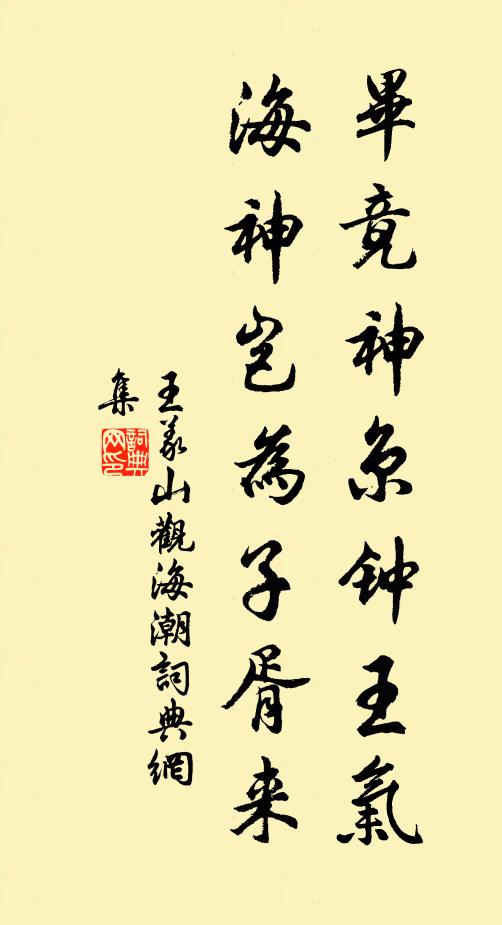 畢竟神京钟王氣
海神岂為子胥来
王义山觀海潮詞典網
集
詞典網印